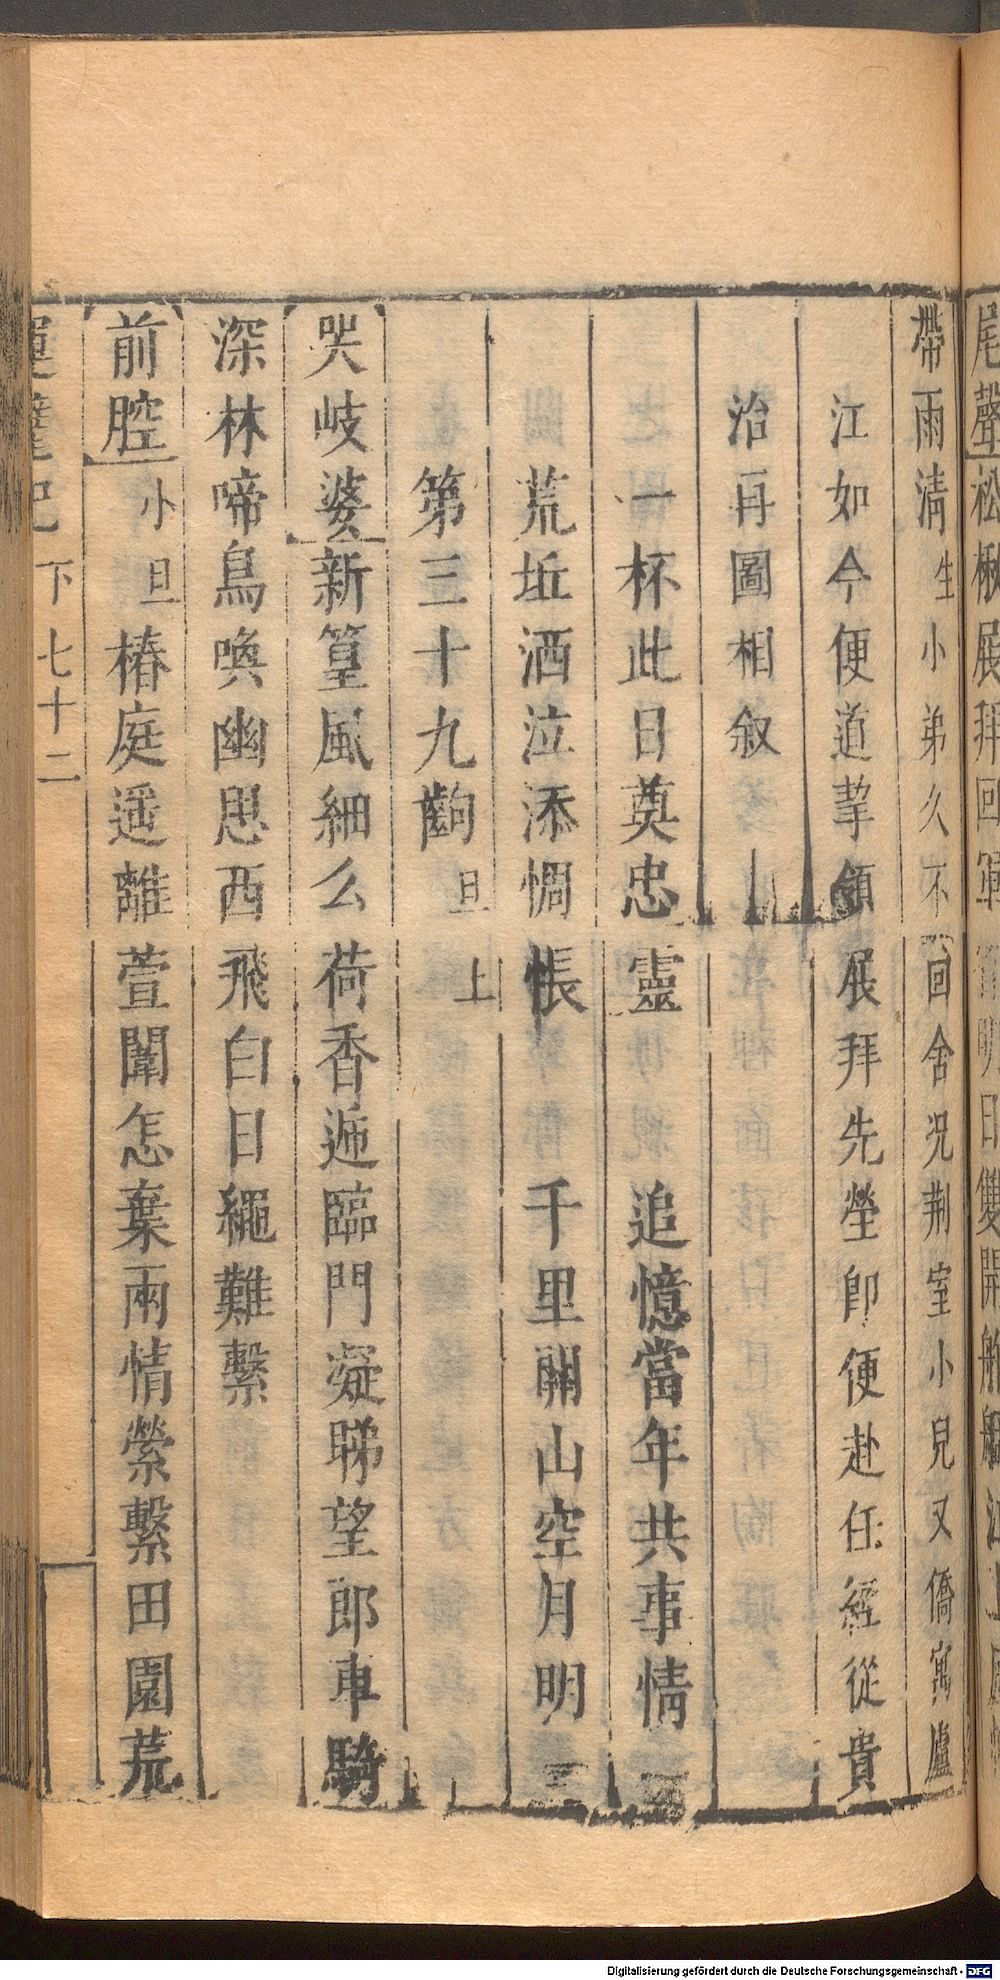 尾聲松楸展拜回軍
明日雙開船
帶雨淸生小弟久不回舍况荆室小兒又僑寓廬
江如今便道挈領展拜先塋卽便赴任經從貴
治再圖相叙
一杯此日奠忠靈 追憶當年共事情
荒坵洒泣添惆悵 千里關山空月明
第三十九齣 旦上
哭岐婆新篁風細么荷香遞臨門凝睇望郎車騎
深林啼鳥喚幽思西飛白日繩難繫
前腔小旦椿庭遥離萱闈怎棄兩情縈繫田園荒
運甓記 下 七十二
Digitalisierung gefördert durch die Deutsche Forschungsgemeinschaft - DFG